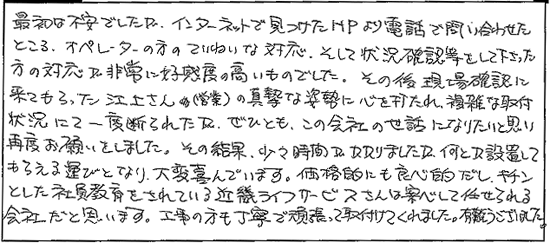 最初は不安でしたが、インターネットで見つけたHPより電話で問い合わせた
ところ、オペレーターの方のていねいな対応、そして状況確認等をして下さった
方の対応が非常に好感度の高いものでした。その後現場確認に
来てもらった江上さん(営業)の真摯な姿勢に心を打たれ、複雑な取付
状況にて一度断られたが、ぜひとも、この会社の世話になりたいと思い
再度お願いをしました。その結果、少々時間がかかりましたが、何とか設置して
もらえる運びとなり、大変喜んでいます。価格的にも良心的だし、キチン
とした社員教育をされている近畿ライフサービスさんは安心して任せられる
会社だと思います。工事の方も丁寧で頑張って取付けてくれました。有難うございました。